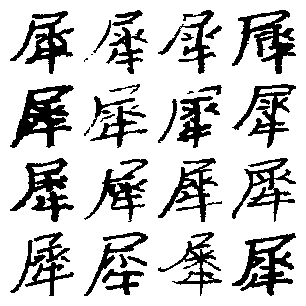 犀犀犀犀
犀犀犀犀
犀犀犀犀
犀犀犀犀